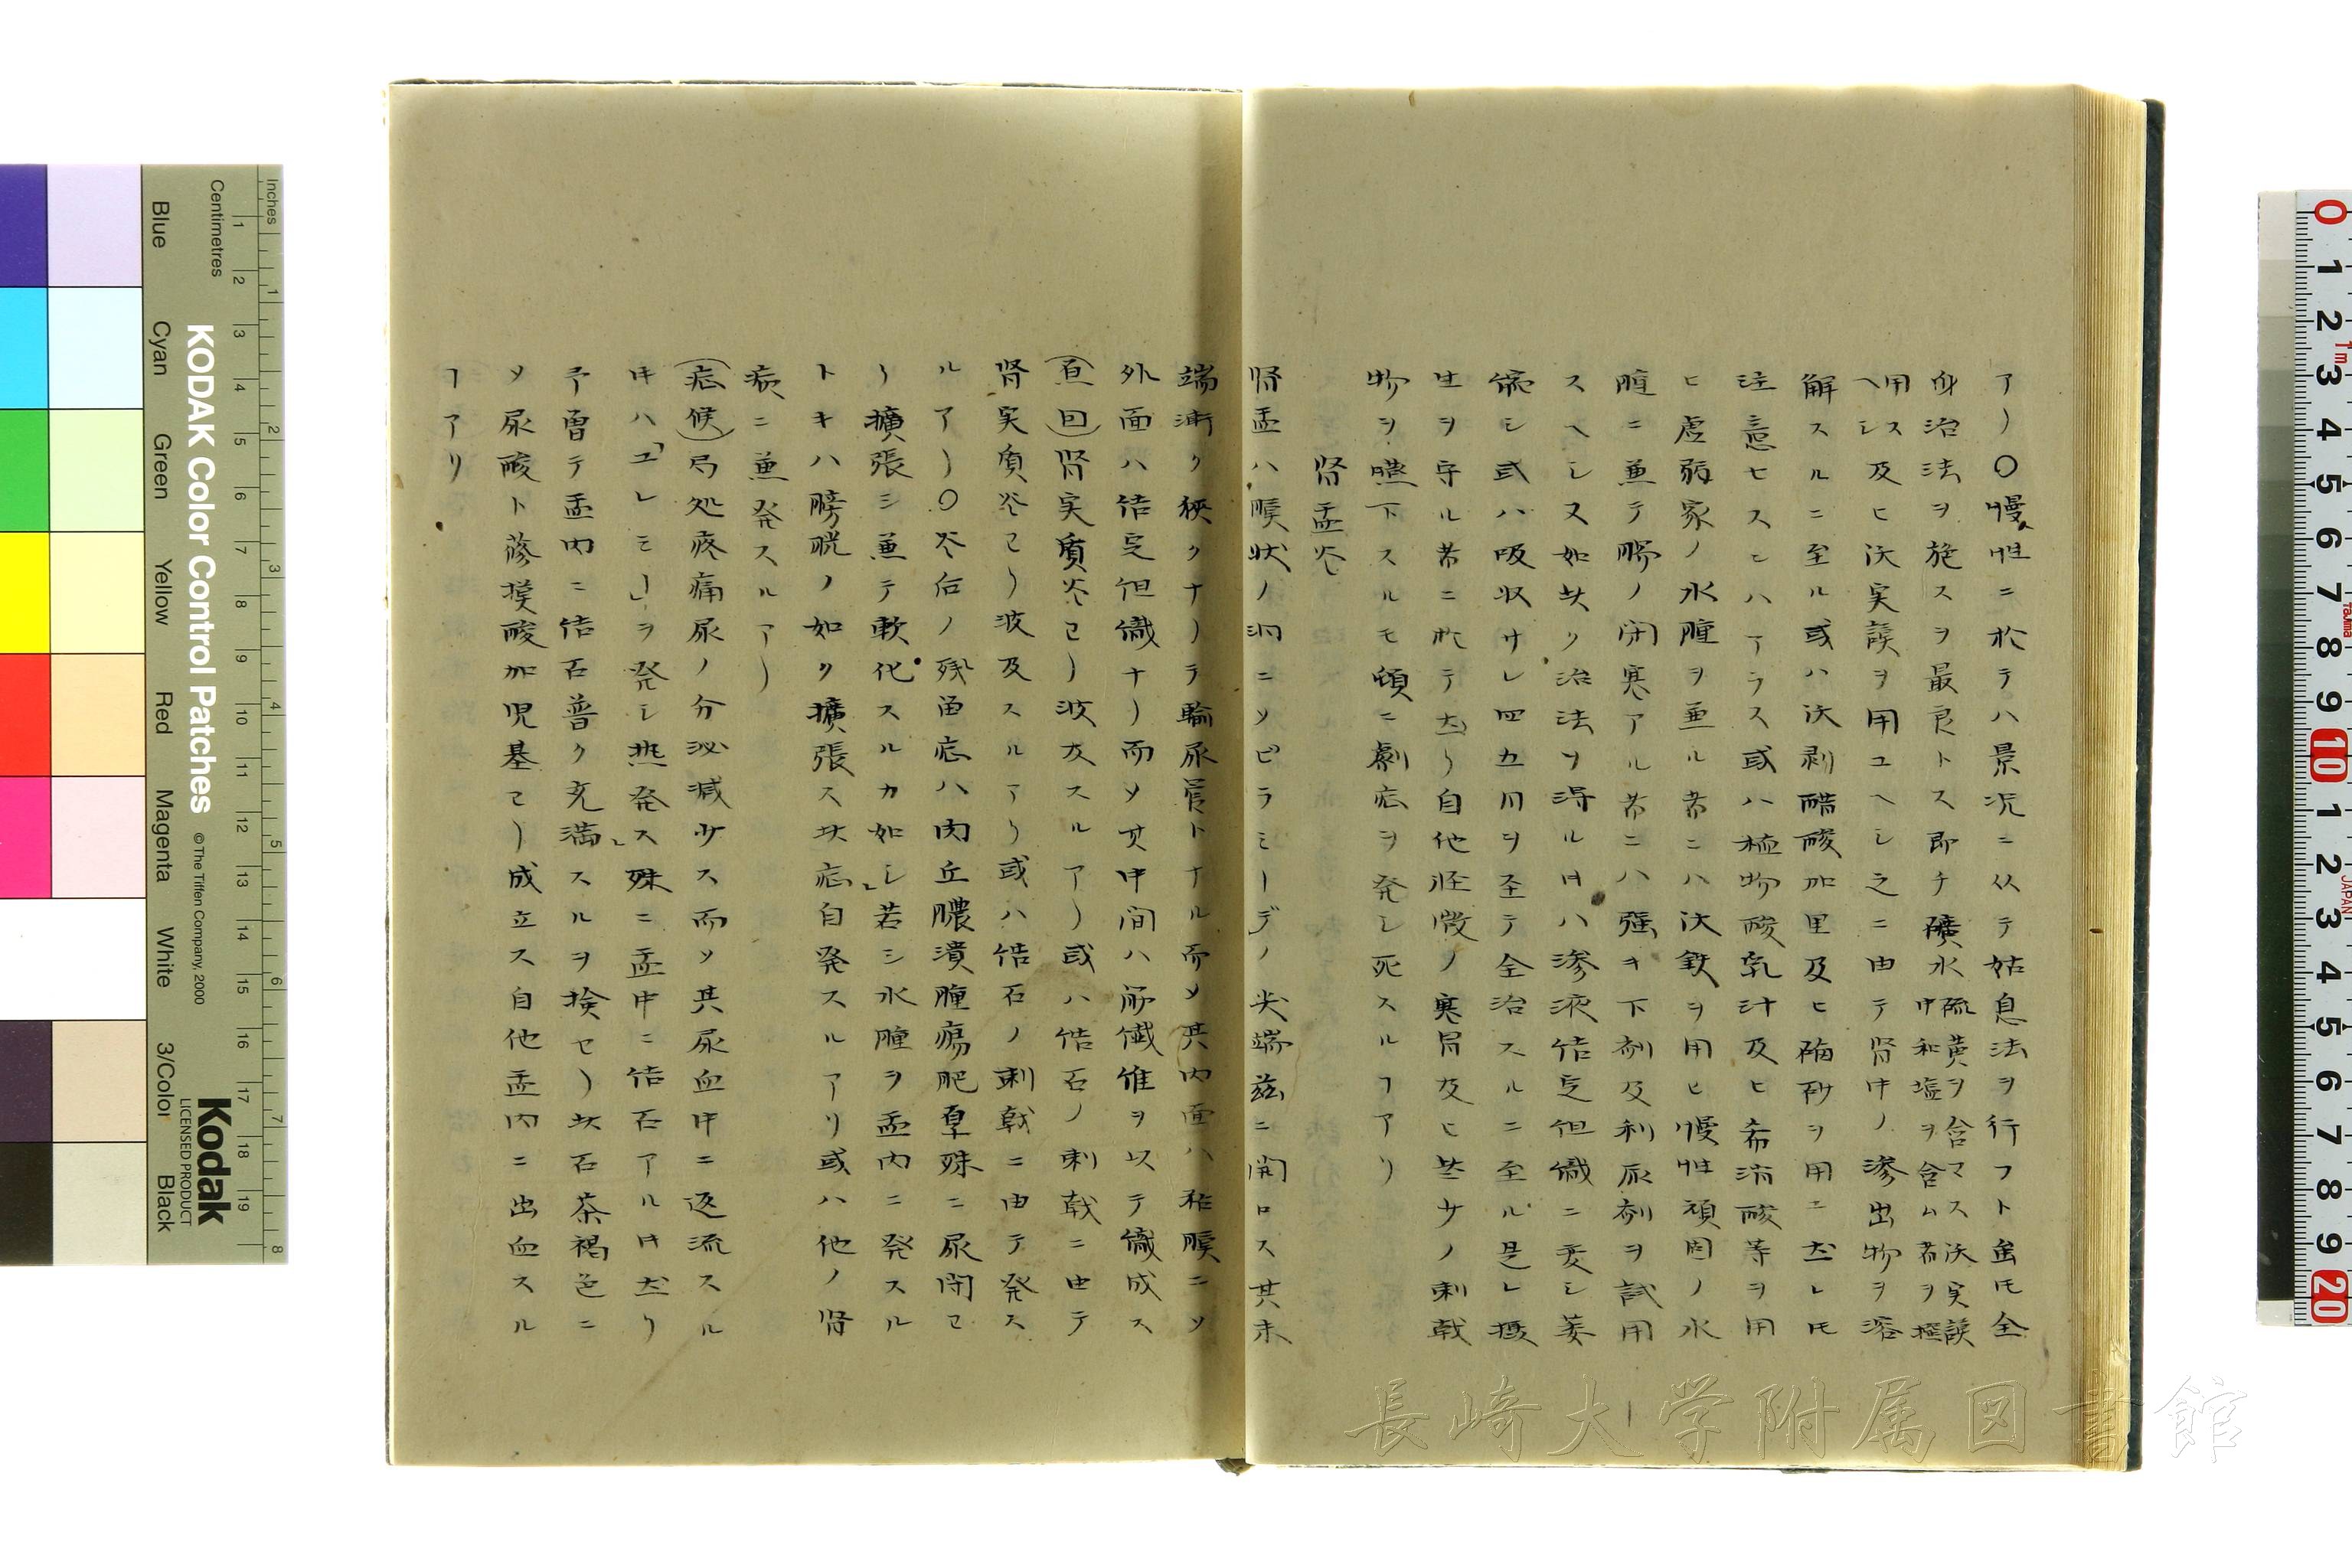 アリ〇慢性ニ於テハ景况ニ从テ姑息法ヲ行フト虽㡪全
身治法ヲ施スヲ最良トス即チ礦水硫黄ヲ含マス沃実謨
中和塩ヲ含ム者ヲ撰
用ス
ヘシ及ヒ沃実謨ヲ用ユヘシ之ニ由テ腎中ノ滲出物ヲ溶
解スルニ至ル或ハ沃剥醋酸加里及ヒ硇砂ヲ用ニ尤レ㡪
注意セスンハアラス或ハ植物酸乳汁及ヒ希硫酸等ヲ用
ヒ虚弱家ノ水腫ヲ兼ル者ニハ沃鉄ヲ用ヒ慢性頑固ノ水
腫ニ兼テ腸ノ閉塞アル者ニハ強キ下剤及利尿剤ヲ試用
スヘシ又如此ク治法ヲ得ルㄐハ滲液结定但織ニ変シ萎
縮シ或ハ吸収サレ四五月ヲ至テ全治スルニ至ル是レ摂
生ヲ守ル者ニ於テ尤リ自他活微ノ寒冒及ヒ些少ノ刺戟
物ヲ嚥下スルモ頓ニ劇症ヲ発シ死スルヿアリ
腎盂炎
腎盂ハ膜状ノ洞ニソピラミーデノ尖端茲ニ開口ス其末
端漸ク狭クナリテ輸尿管トナル而ソ其内面ハ粘膜ニソ
外面ハ结定但織ナリ而ソ其中間ハ筋纎維ヲ以テ織成ス
(原因)腎実質炎ヨリ波及スルアリ或ハ结石ノ刺戟ニ由テ
腎実質炎ヨリ波及スルアリ或ハ结石ノ刺戟ニ由テ発ス
ルアリ〇炎后ノ残畄症ハ肉丘膿潰腫瘍肥厚殊ニ尿閉ヨ
リ擴張シ兼テ軟化スルカ如シ若シ水腫ヲ盂内ニ発スル
トキハ膀胱ノ如ク擴張ス此症自発スルアリ或ハ他ノ腎
病ニ兼発スルアリ
(症候)局処疼痛尿ノ分泌減少ス而ソ其尿血中ニ返流スル
ㄐハ「ユレミー」ヲ発シ热発ス殊ニ盂中ニ结石アルㄐ尤リ
予曽テ盂内ニ结石普ク充満スルヲ検セリ此石茶褐色ニ
ソ尿酸ト蓚摸酸加児基ヨリ成立ス自他盂内ニ出血スル
ヿアリ
長崎大学附属図書館
KODAK Color Control Patches
© The Tiffen Company, 2000
Kodak
LICENSED PRODUCT
Inches
Centimetres
Blue
Cyan
Green
Yellow
Red
Magenta
White
3/Color
Black